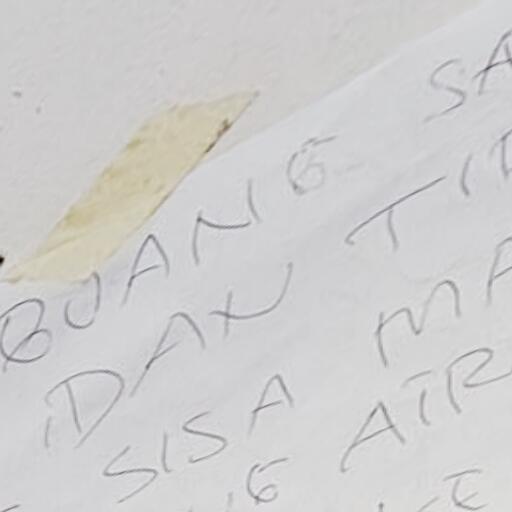 BUANG SA
DAN TID
SISA MA
AIR